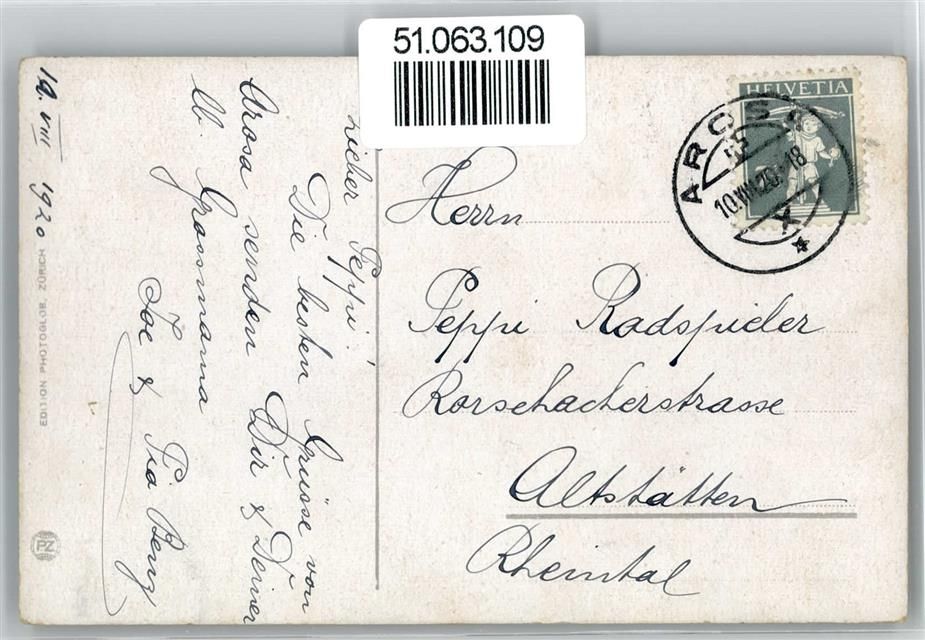 51.063.109
HELVETIA
AROSA
10.VIII.20.-18
19. VIII 1920
Lieber Peppi!
Die besten Grüsse von
Arosa senden Dir & Deiner
lb. Grossmama
Zoë & Pia Benz
Herrn
Peppi Radspieler
Rorschacherstrasse
Altstätten
Rheintal
EDITION PHOTOGLOB, ZÜRICH
PZ